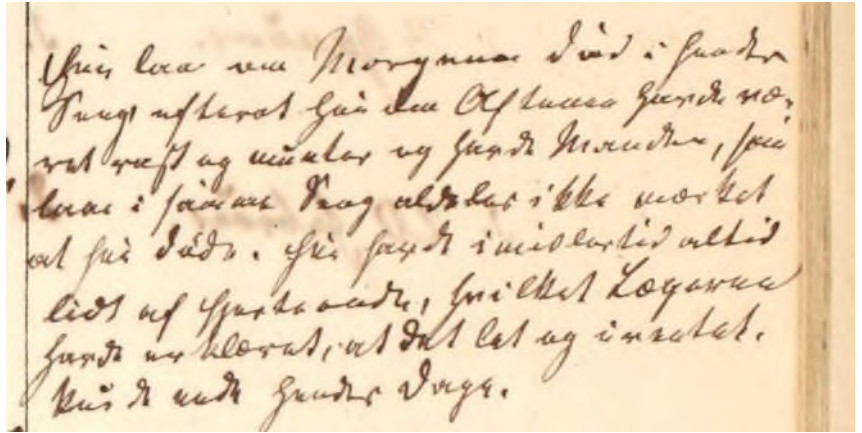 Hun laa om Morgenen død i hendes
Seng efterat hun om Aftenen havde væ-
ret rask og munter og havde Manden, som
laae i samme Seng aldeles ikke mærket
at hun døde. Hun havde imidlertid altid
lidt af Hjerteonde, hvilket Lægerne
havde erklæret, at det let og uventet
kunde ende hendes Dage.